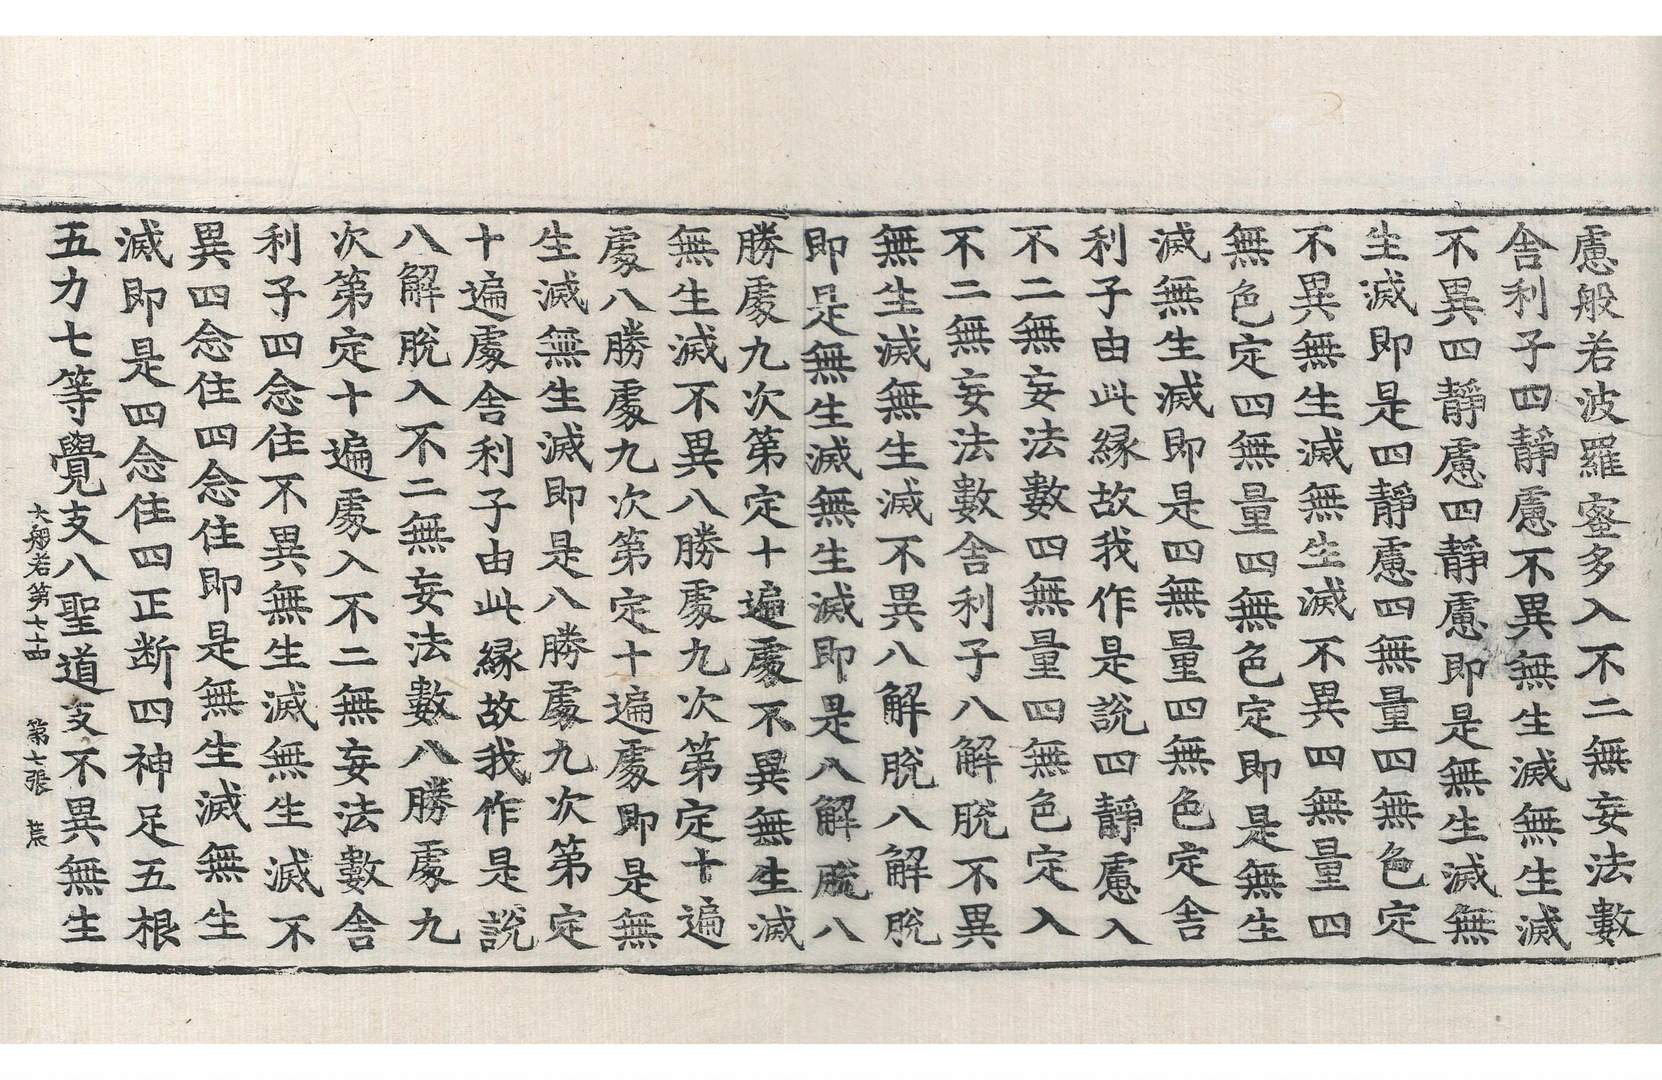 慮般若波羅蜜多入不二無妄法數
舍利子四靜慮不異無生滅無生滅
不異四靜慮四靜慮即是無生滅無
生滅即是四靜慮四無量四無色定
不異無生滅無生滅不異四無量四
無色定四無量四無色定即是無生
滅無生滅即是四無量四無色定舍
利子由此緣故我作是說四靜慮入
不二無妄法數四無量四無色定入
不二無妄法數舍利子八解脫不異
無生滅無生滅不異八解脫八解脫
即是無生滅無生滅即是八解脫八
勝處九次第定十遍處不異無生滅
無生滅不異八勝處九次第定十遍
處八勝處九次第定十遍處即是無
生滅無生滅即是八勝處九次第定
十遍處舍利子由此緣故我作是說
八解脫入不二無妄法數八勝處九
次第定十遍處入不二無妄法數舍
利子四念住不異無生滅無生滅不
異四念住四念住即是無生滅無生
滅即是四念住四正断四神足五根
五力七等覺支八聖道支不異無生
大般若第七十四 第七張 荒